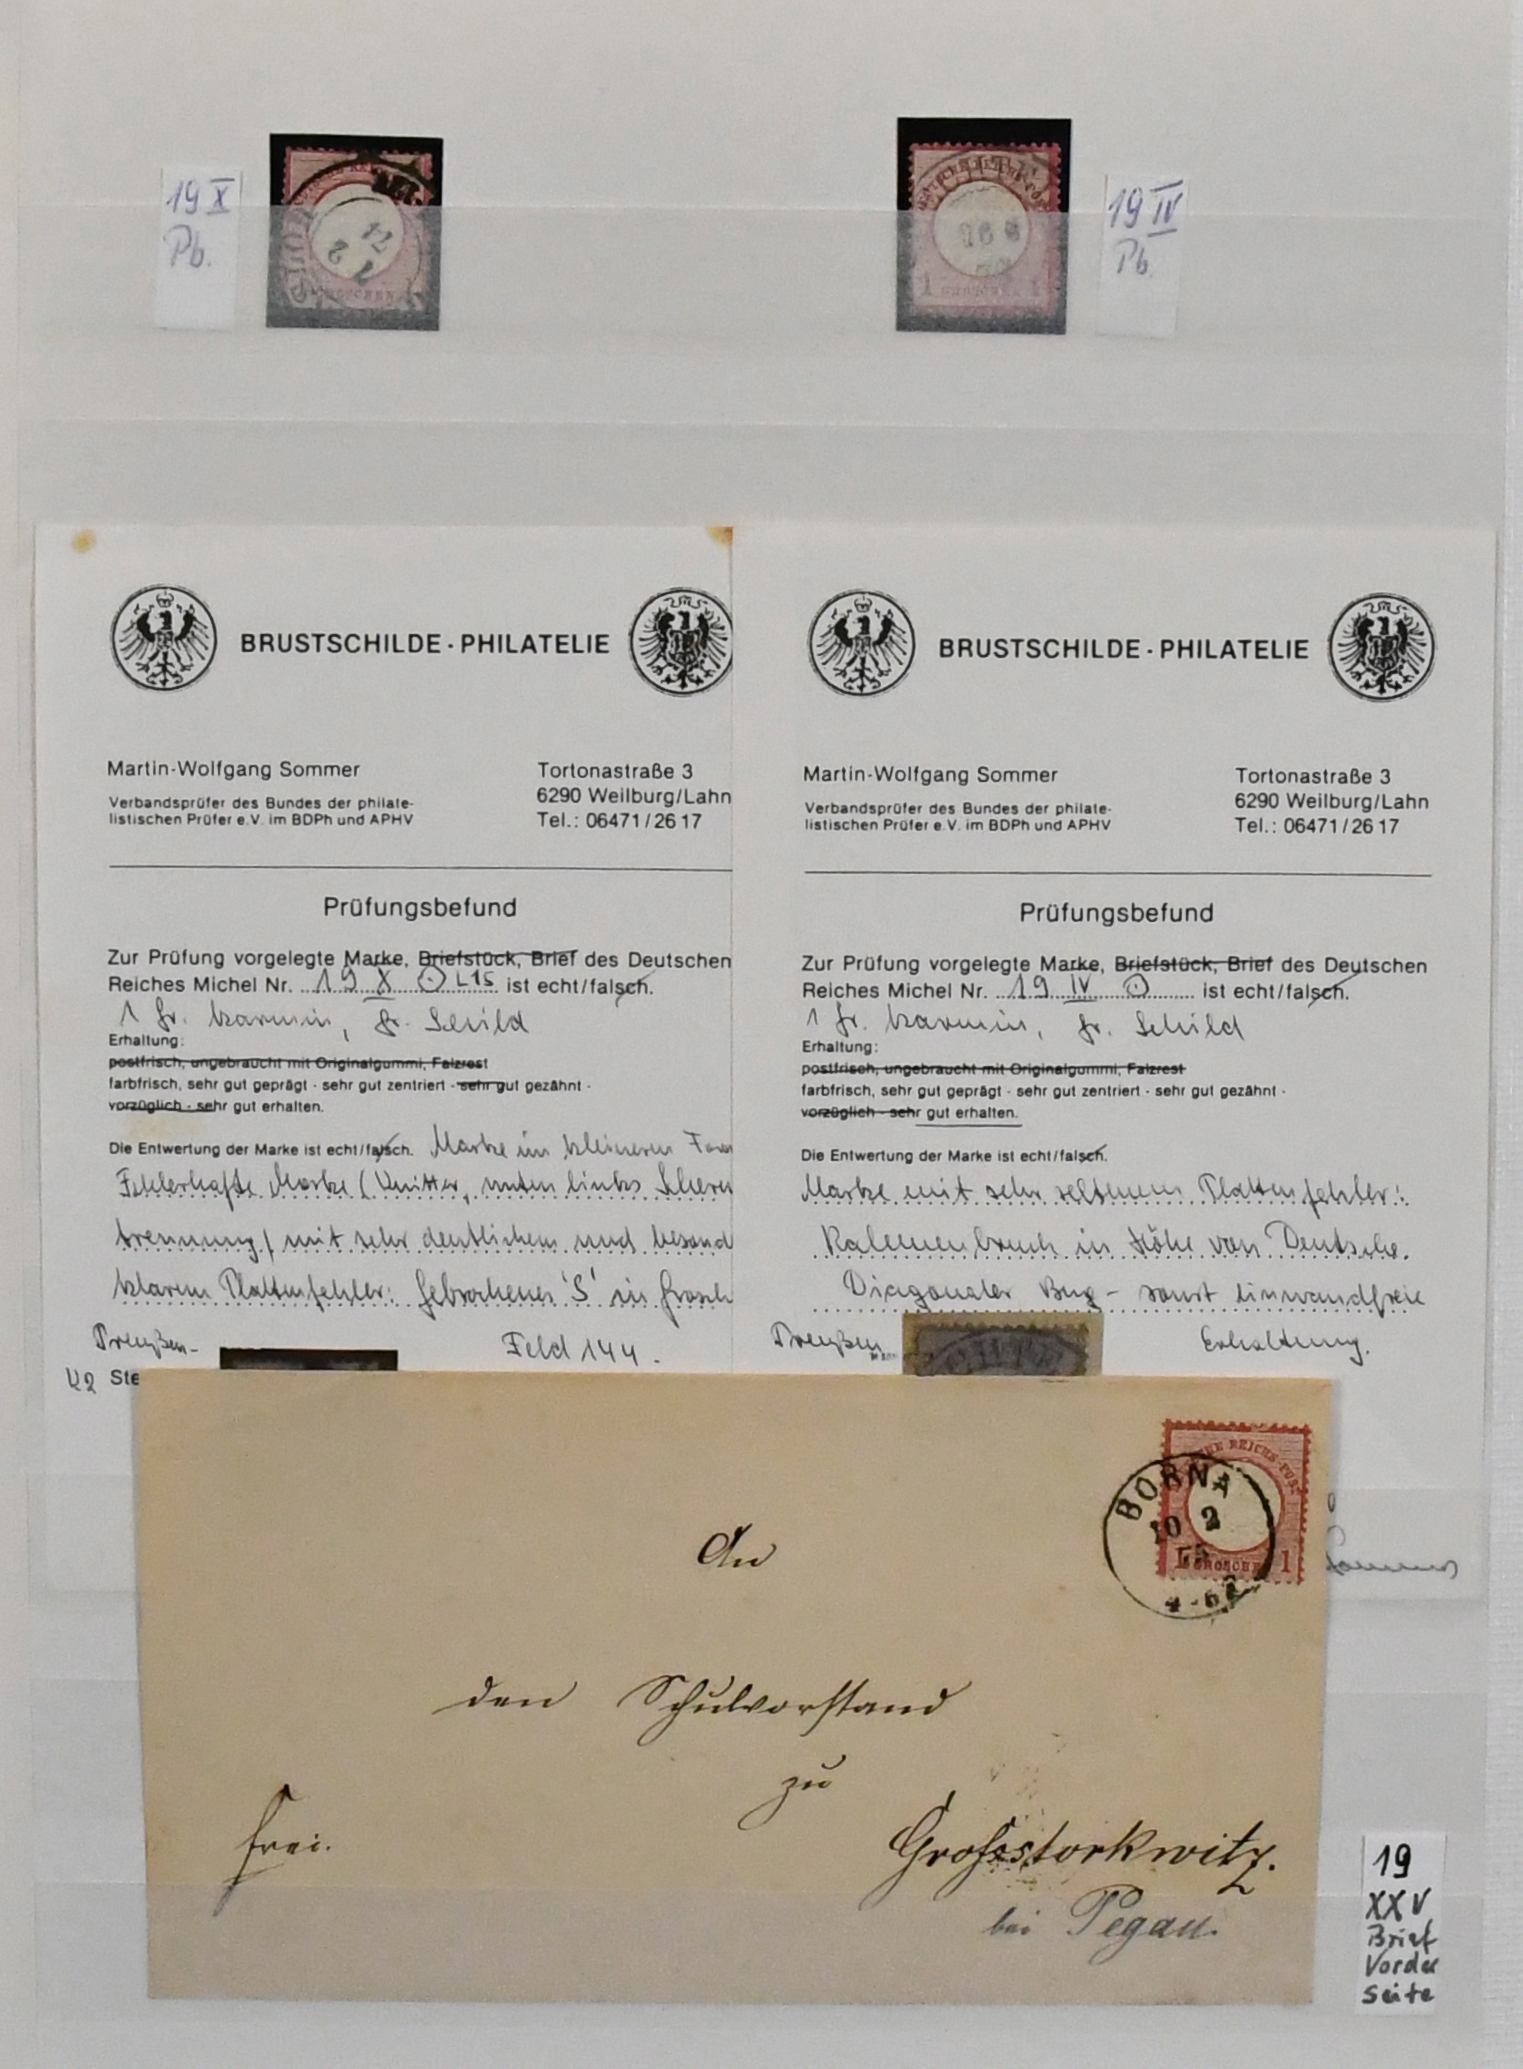 19 X
Pb.
71
2
1
GROSCHEN
19 IV
Pb.
1 GROSCHEN 1
BRUSTSCHILDE · PHILATELIE
Martin-Wolfgang Sommer
Tortonastraße 3
Verbandsprüfer des Bundes der philate-
listischen Prüfer e.V. im BDPh und APHV
6290 Weilburg/Lahn
Tel.: 06471/26 17
Prüfungsbefund
Zur Prüfung vorgelegte Marke, Briefstück, Brief des Deutschen
Reiches Michel Nr. 19 X ⊙ L15 ist echt/falsch.
1 Gr. karmin, gr. Schild
Erhaltung:
postfrisch, ungebraucht mit Originalgummi, Falzrest
farbfrisch, sehr gut geprägt · sehr gut zentriert · sehr gut gezähnt ·
vorzüglich · sehr gut erhalten.
Die Entwertung der Marke ist echt/falsch. Marke im kleineren
Fehlerhafte Marke (Knitter, unten links Scheren
trennung) mit sehr deutlichem und besond
klarem Plattenfehler: Gebrochenes 'S' in Grosch
Preußen-
Feld 144.
K2 Ste
BRUSTSCHILDE · PHILATELIE
Martin-Wolfgang Sommer
Tortonastraße 3
Verbandsprüfer des Bundes der philate-
listischen Prüfer e.V. im BDPh und APHV
6290 Weilburg/Lahn
Tel.: 06471/26 17
Prüfungsbefund
Zur Prüfung vorgelegte Marke, Briefstück, Brief des Deutschen
Reiches Michel Nr. 19 IV ⊙ ist echt/falsch.
1 Gr. karmin, gr. Schild
Erhaltung:
postfrisch, ungebraucht mit Originalgummi, Falzrest
farbfrisch, sehr gut geprägt · sehr gut zentriert · sehr gut gezähnt ·
vorzüglich · sehr gut erhalten.
Die Entwertung der Marke ist echt/falsch.
Marke mit sehr seltenem Plattenfehler:
Rahmenbruch in Höhe von Deutsche.
Diagonaler Bug - sonst einwandfreie
Preußen
Erhaltung.
Sommer
REICHS-POST
BORNA
10 2
4-6
GROSCHEN 1
An
den Schulvorstand
zu
frei.
Grossstorkwitz.
bei Pegau.
19
XXV
Brief
Vorder
seite